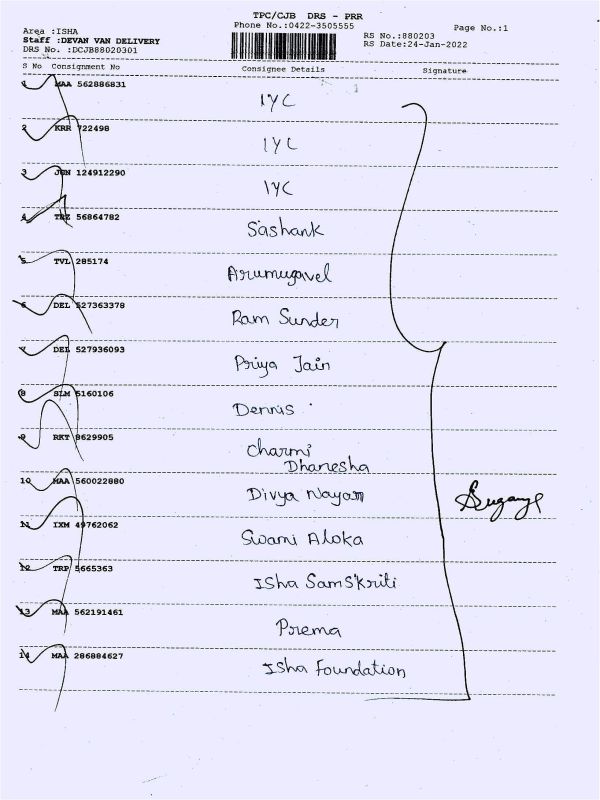 TPC/CJB DRS - PRR
Phone No.:0422-3505555
Page No.:1
Area :ISHA
Staff :DEVAN VAN DELIVERY
DRS No. :DCJB88020301
RS No.:880203
RS Date:24-Jan-2022
S No Consignment No Consignee Details Signature
1 MAA 562886831 IYC
2 KRR 722498 IYC
3 JUN 124912290 IYC
4 TRZ 56864782 Sashank
5 TVL 285174 Arumugavel
6 DEL 527363378 Ram Sunder
7 DEL 527936093 Priya Jain
8 SLM 5160106 Dennis
9 RKT 8629905 Charmi
Dhanesha
10 MAA 560022880 Divya Nayan
11 IXM 49762062 Swami Aloka
12 TRP 5665363 Isha Samskriti
13 MAA 562191461 Prema
14 MAA 286884627 Isha Foundation